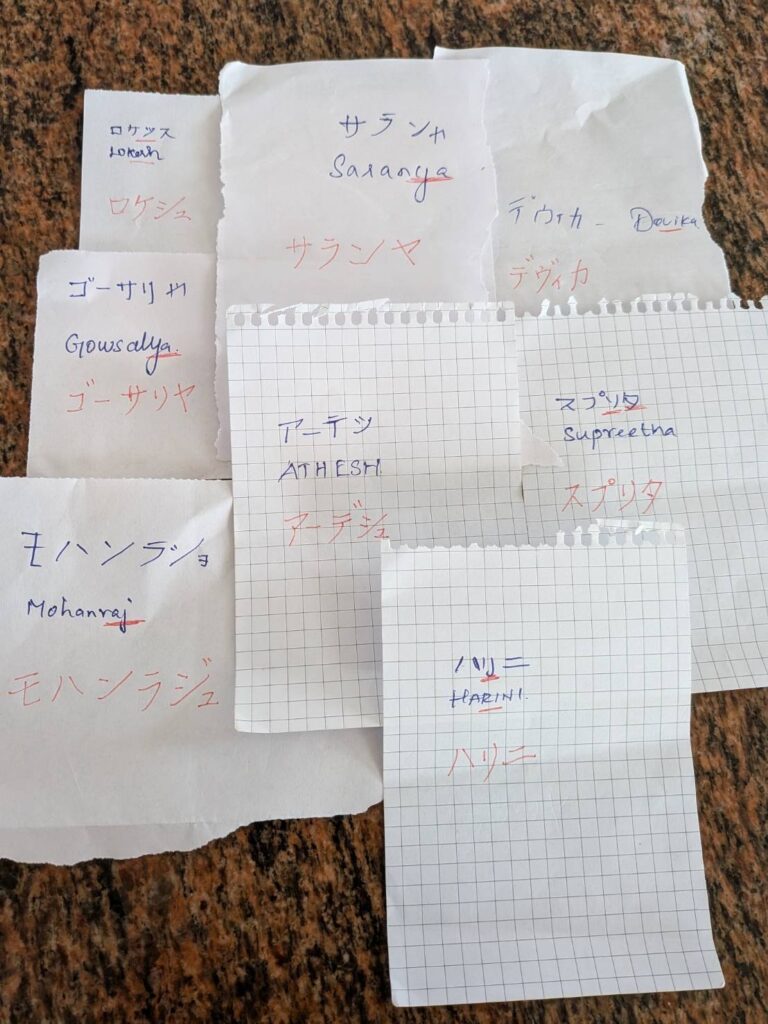 ロケッス
Lokesh
ロケシュ
サランャ
Saranya
サランヤ
デウィカ - Devika
デヴィカ
ゴーサリャ
Gowsalya.
ゴーサリヤ
アーテツ
ATHESH
アーデシュ
スプリタ
Supreetha
スプリタ
モハンラショ
Mohanraj
モハンラジュ
ハリニ
HARINI.
ハリニ